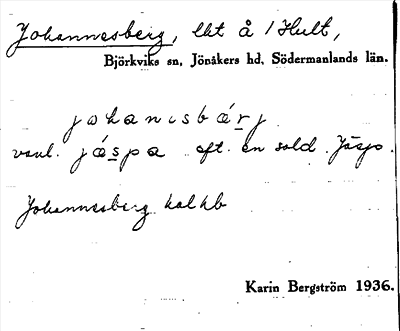 Johannesberg, lht å 1 Hult,
Björkviks sn, Jönåkers hd, Södermanlands län.
johanisbárj
vanl. jáspa eft. en sold. Jäsp.
Johannesberg hal kb
Karin Bergström 1936.